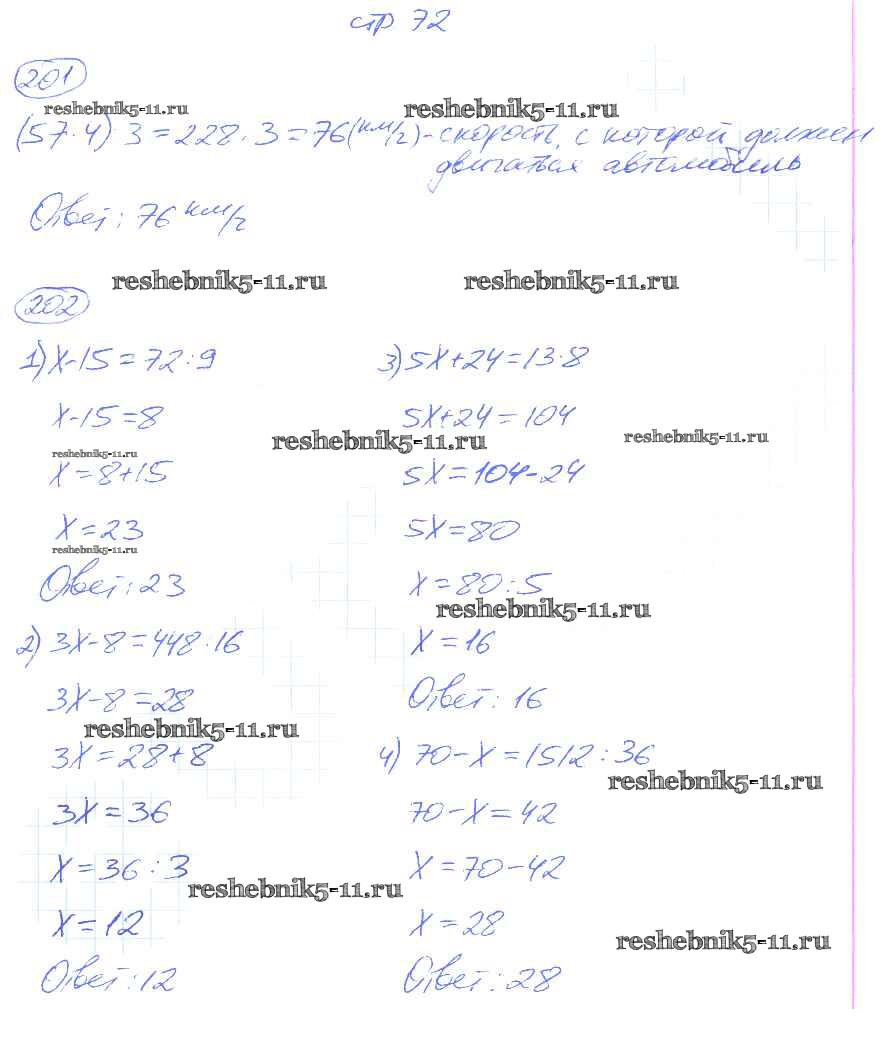 стр 72
201
reshebnik5-11.ru reshebnik5-11.ru
(57·4) 3=228·3=76(км/г)-скорость, с которой должен
двигаться автомобиль
Ответ: 76 км/г
reshebnik5-11.ru reshebnik5-11.ru
202
1) x-15=72:9
x-15=8
reshebnik5-11.ru
x=8+15
x=23
reshebnik5-11.ru
Ответ: 23
2) 3x-8=448·16
3x-8=28
reshebnik5-11.ru
3x=28+8
3x=36
x=36:3
reshebnik5-11.ru
x=12
Ответ: 12
3) 5x+24=13·8
5x+24=104
reshebnik5-11.ru reshebnik5-11.ru
5x=104-24
5x=80
x=80:5
reshebnik5-11.ru
x=16
Ответ: 16
4) 70-x=1512:36
reshebnik5-11.ru
70-x=42
x=70-42
x=28
reshebnik5-11.ru
Ответ: 28